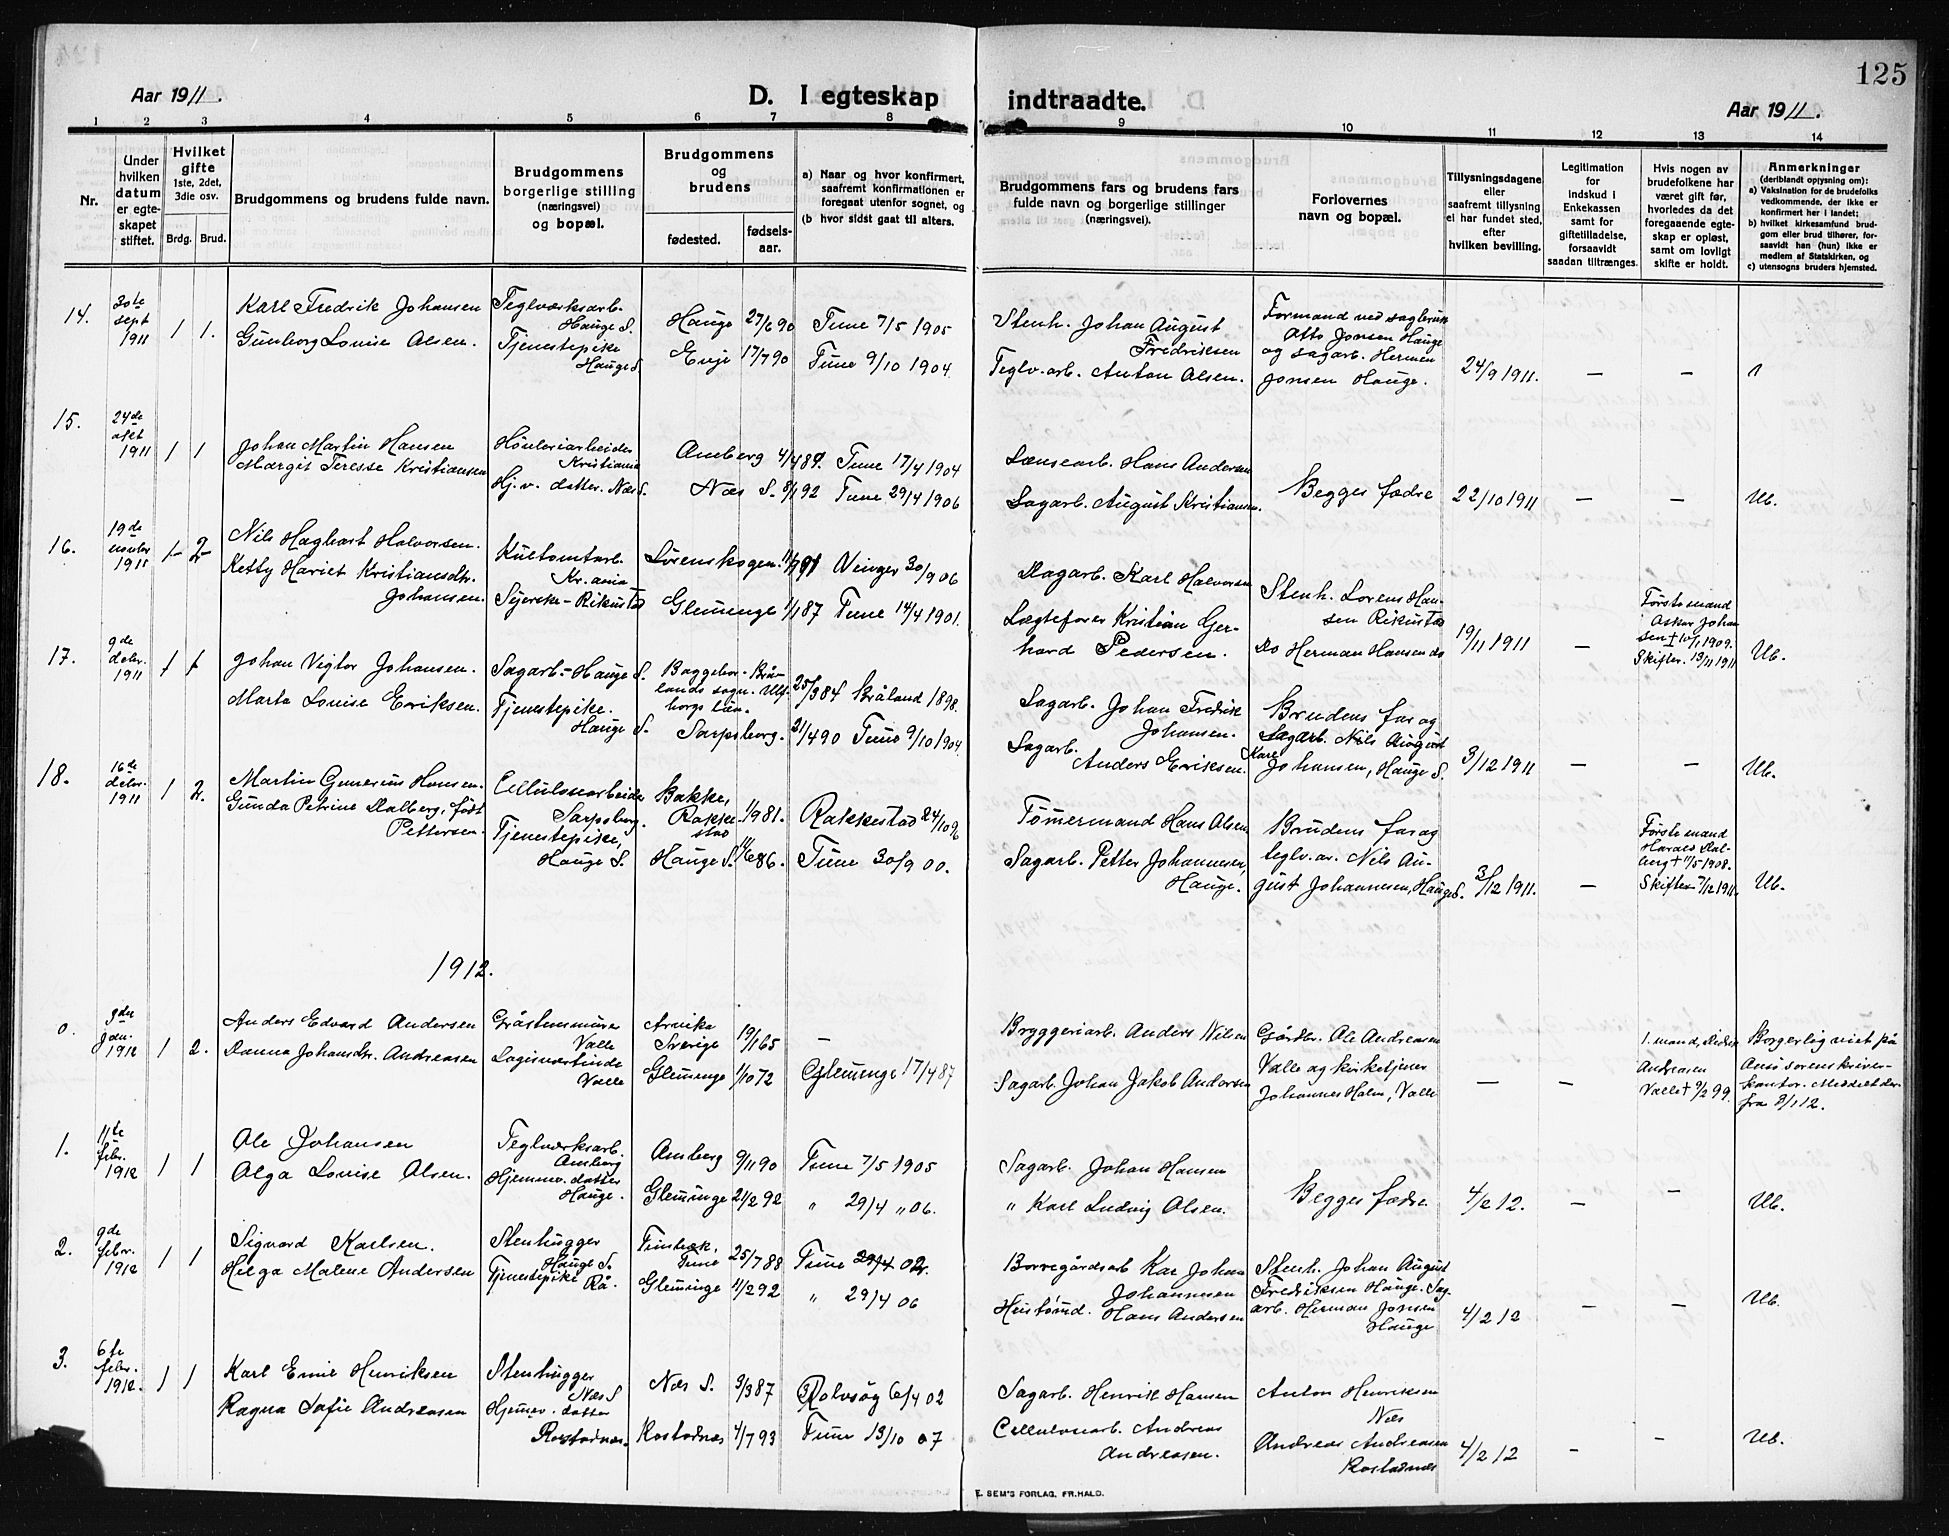 125
Aar 1911.
D. I egteskap indtraadte.
Aar 1911.
1 2 3 4 5 6 7 8 9 10 11 12 13 14
Nr.
Under hvilken datum er egte-skapet stiftet.
Hvilket gifte 1ste, 2det, 3die osv.
Brdg. Brud.
Brudgommens og brudens fulde navn.
Brudgommens borgerlige stilling (næringsvei) og bopæl.
Brudgommens og brudens
fødested.
fødsels-aar.
a) Naar og hvor konfirmert, saafremt konfirmationen er foregaat utenfor sognet, og
(b hvor sidst gaat til alters.
Brudgommens fars og brudens fars fulde navn og borgerlige stillinger (næringsvei).
Forlovernes navn og bopæl.
Tillysningsdagene eller saafremt tillysning ei har fundet sted, efter hvilken bevilling.
Legitimation for indskud i Enkekassen samt for giftetilladelse, forsaavidt saadan tiltrænges.
Hvis nogen av brudefolkene har været gift før, hvorledes da det foregaaende egte-skap er opløst, samt om lovligt skifte er holdt.
Anmerkninger (deriblandt opysning om):
a) Vaksination for de brudefolks vedkommende, der ikke er konfirmert her i landet;
b) hvilket kirkesamfund brud-gom eller brud tilhører, for-saavidt han (hun) ikke er medlem af Statskirken, og
c) utensogns bruders hjemsted.
14. 30te sept 1911 1 1.
Karl Fredrik Johansen
Gunborg Louise Olsen.
Teglværksarb. Hauge S.
Tjenestepike Hauge S.
Hauge 27/6 90 Tune 7/5 1905
Enje 17/7 90 Tune 9/10 1904.
Stenh. Johan August Fredriksen
Teglv. arb. Anton Olsen.
Formand ved sagbruk
Otto Jonsen Hauge
og sagarb. Herman
Jonsen Hauge.
24/9 1911. — —
15. 24de okt 1911 1 1
Johan Martin Hansen
Margit Teresse Kristiansen
Høvleriarbeider Kristiania
Hj. v. datter. Næs S.
Omberg 4/4 89. Tune 17/4 1904
Næs S. 8/1 92 Tune 29/4 1906
Lænsearb. Hans Andersen
Sagarb. August Kristiansen.
Begges fædre
22/10 1911 — — Ub.
16. 19de novbr 1911 1 2
Nils Hagbart Halvorsen.
Ketty Hariet Kristiansdtr. Johansen.
Kultomtarb. Kr.ania
Syerske - Rikustad
Lørenskogen. Vinger 30/9 06
Glemminge 1/1 87 Tune 14/4 1901.
Dagarb. Karl Halvorsen
Lægtefører Kristian Ger-
hard Pedersen.
Stenh. Lorens Han-
sen Rikustad
Do Herman Hansen do
19/11 1911 —
Første mand
Oskar Johan
sen † 10/1 1909.
Skifter. 13/11 1911
Ub.
17. 9de debr. 1911 1 1
Johan Vigtor Johansen.
Marta Louise Eriksen.
Sagarb. - Hauge S.
Tjenestepike. Hauge S.
Sarpsborg.
25/3 84 Bråland 1898.
21/4 90 Tune 9/10 1904.
Sagarb. Johan Fredrik Johansen.
Sagarb. Anders Eriksen.
Brudens far og
Sagarb. Nils August
Karl Johansen, Hauge S.
3/12 1911 — — Ub.
18. 16te debr. 1911 1 2.
Martin Gunerius Hansen.
Gunda Petrine Dalberg, født Pettersen.
Cellulosearbeider Sarpsborg.
Tjenestepike, Hauge S.
Bakke, Rakkestad 1/9 81. Rakkestad 24/10 96
Hauge S. 11/6 86. Tune 30/9 00.
Tømermand Hans Olsen
Sagarb. Petter Johannesen, Hauge.
Brudens far og
teglv. ar. Nils Au-
gust Johannesen, Hauge S.
3/12 1911. —
Første mand
Harald Dal-
berg † 11/5 1908.
Skifter 7/12 1911
Ub.
1912.
0. 9de jan. 1912 1 2.
Anders Edvard Andersen
Danna Johansdtr. Andreasen
Gråstensmurer Valle
Logisvertinde Valle
Arvika Sverige 19/1 65 —
Glemminge 1/10 72 Glemminge 17/4 87
Bryggeriarb. Anders Nilsen
Sagarb. Johan Jakob Andersen
Gårdbr. Ole Andreasen
Valle og kirketjener
Johannes Holm, Valle
— —
1. mand,
Andreasen
Valle † 9/2 99.
Borgerlig viet på
Onsø sorenskriver-
kontor. Meddelt der-
fra 9/1 12.
1. 11te febr. 1912 1 1
Ole Johansen
Olga Louise Olsen.
Teglverksarb. Omberg
Hjemmev. datter Hauge.
Omberg 9/11 90 Tune 7/5 1905
Glemminge 21/2 92 " 29/4 " 06.
Sagarb. Johan Hansen
" Karl Ludvig Olsen.
Begges fædre
4/2 12. — — Ub.
2. 9de febr. 1912 1 1
Sigvard Karlsen.
Helga Malene Andersen
Stenhugger Hauge S.
Tjenestepike Rå.
Tune 25/7 88 Tune 02.
Glemminge 11/2 92 " 29/4 06
Borregårdsarb Kar Johan Johannesen
Hustømd. Hans Andersen
Stenh. Johan August
Fredriksen Hauge. Sag
arb. Herman Jonsen
Hauge
4/2 12 — — Ub.
3. 6te febr. 1912. 1 1
Karl Emil Henriksen
Ragna Sofie Andreasen
Stenhugger Næs S
Hjemmev. datter
Rostadnæs.
Næs S. 3/3 87 Rolvsøy 6/4 02
Rostadnæs 4/7 93 Tune 13/10 07
Sagarb. Henrik Hansen
Cellulosearb. Andreas Andreasen.
Anton Henriksen Næs
Andreas Andreasen Rostadnæs
4/2 12 — — Ub.
E. SEM'S FORLAG, FR.HALD.